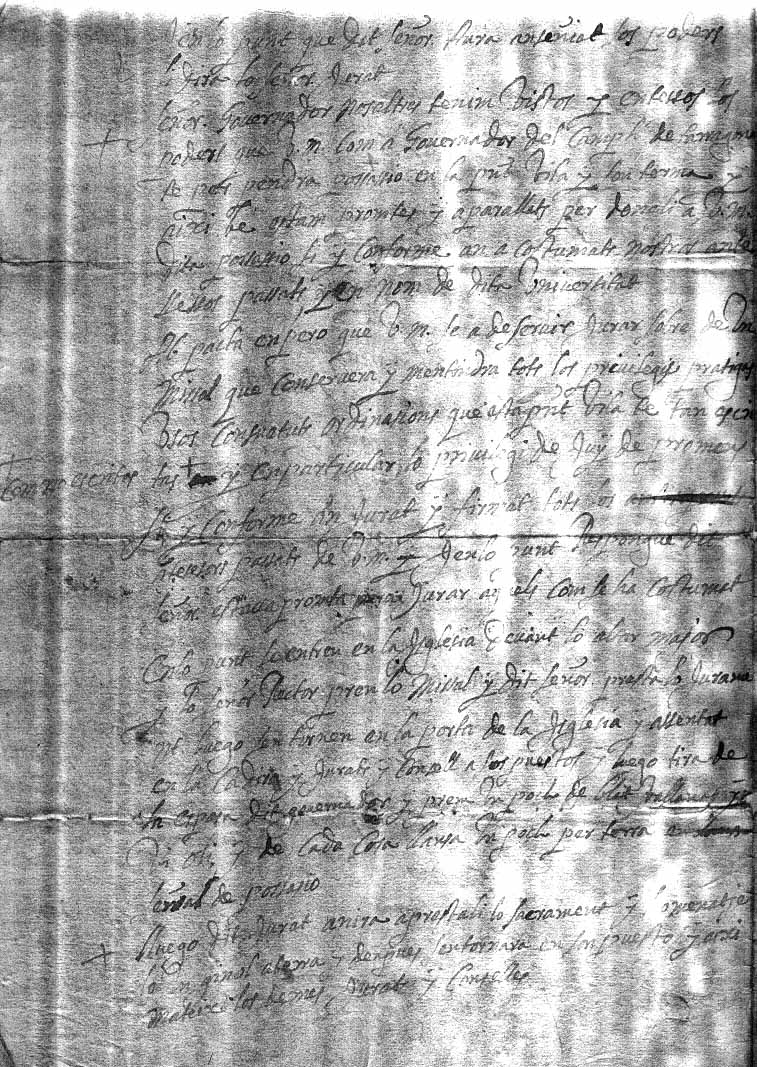 y en lo punt que dit señor haura enseñiat los poders
li dira lo señor Jurat
señor Gouernador nosaltres tenim vistos y entesos los
poders que V.M. com a Gouernador del Camp de Tarragona
te pots pendra possasio en la pnt vila y son terma y
aixi be estam promtes y aparallats per donali a V.M.
dita possasio si y conforme an acostumats nostros ante
sessos passats y en nom de dita Vniuersitat
Ab pacta empero que V.M. se a de seruir Jurar sobre de vn
missal que conseruera y mentindra tots los priuilegis pratigas
vsos consuetuts ordinasions que esta pnt vila te tan escri
com no escritos tas y en particular lo priuilegi de Juy de promens
y conforme an Jurat y firmat tots los
sesors passats de V.M. y en lo punt Respongue dit
señor estaua promta Jurar aquels com se ha costumat
En lo punt se entren en la Iglesia y deuant lo altar major
y lo señor Rector pren lo missal y dit señor presta lo Jurame
nt luego sen tornen en la porta de la Iglesia y assentat
en la Cadira y Jurats y Consell a los puestos y luego tira de
la espasa dit gouernador y pren vn poch de blat
vi oli y de cada cosa llansa vn poch per terra
señal de possasio
lluego dit Jurat anira aprestali lo sacrament y homenatje
ab vn ginol aterra y despues sentornara en son puesto y axi
mateix los demes Jurats y Consellers